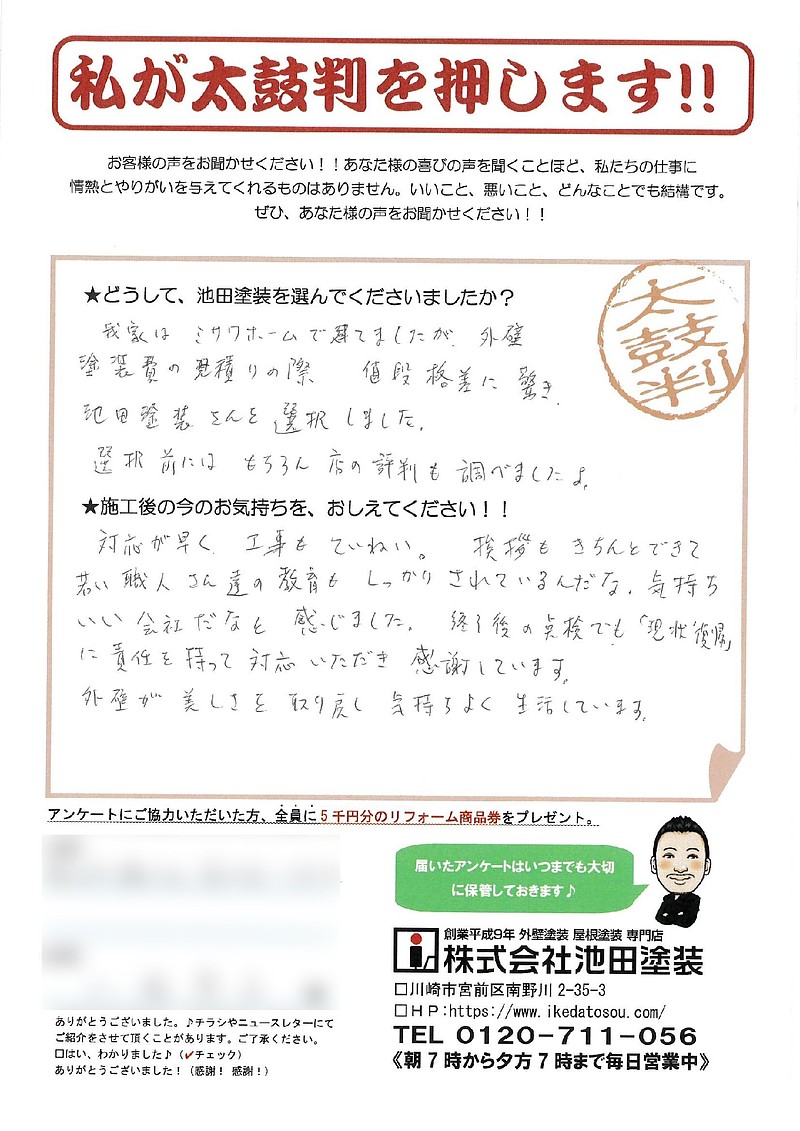 私が太鼓判を押します!!
お客様の声をお聞かせください！！あなた様の喜びの声を聞くことほど、私たちの仕事に
情熱とやりがいを与えてくれるものはありません。いいこと、悪いこと、どんなことでも結構です。
ぜひ、あなた様の声をお聞かせください！！
太鼓判
★どうして、池田塗装を選んでくださいましたか？
我家は ミサワホームで建てましたが、外壁
塗装費の見積りの際 値段格差に驚き、
池田塗装さんを選択しました。
選択前には もちろん店の評判も調べましたよ。
★施工後の今のお気持ちを、おしえてください！！
対応が早く、工事もていねい。 挨拶もきちんとできて
若い職人さん達の教育もしっかりされているんだな、気持ち
いい会社だなと感じました。 終了後の点検でも「現状復帰」
に責任を持って対応いただき感謝しています。
外壁が美しさを取り戻し気持ちよく生活しています。
アンケートにご協力いただいた方、全員に5千円分のリフォーム商品券をプレゼント。
届いたアンケートはいつまでも大切
に保管しておきます♪
創業平成9年 外壁塗装 屋根塗装 専門店
株式会社池田塗装
□川崎市宮前区南野川2-35-3
□ＨＰ:https://www.ikedatosou.com/
TEL 0120-711-056
《朝7時から夕方7時まで毎日営業中》
ありがとうございました。♪チラシやニュースレターにて
ご紹介をさせて頂くことがあります。ご了承ください。
□はい、わかりました♪（✓チェック）
ありがとうございました！（感謝！感謝！）